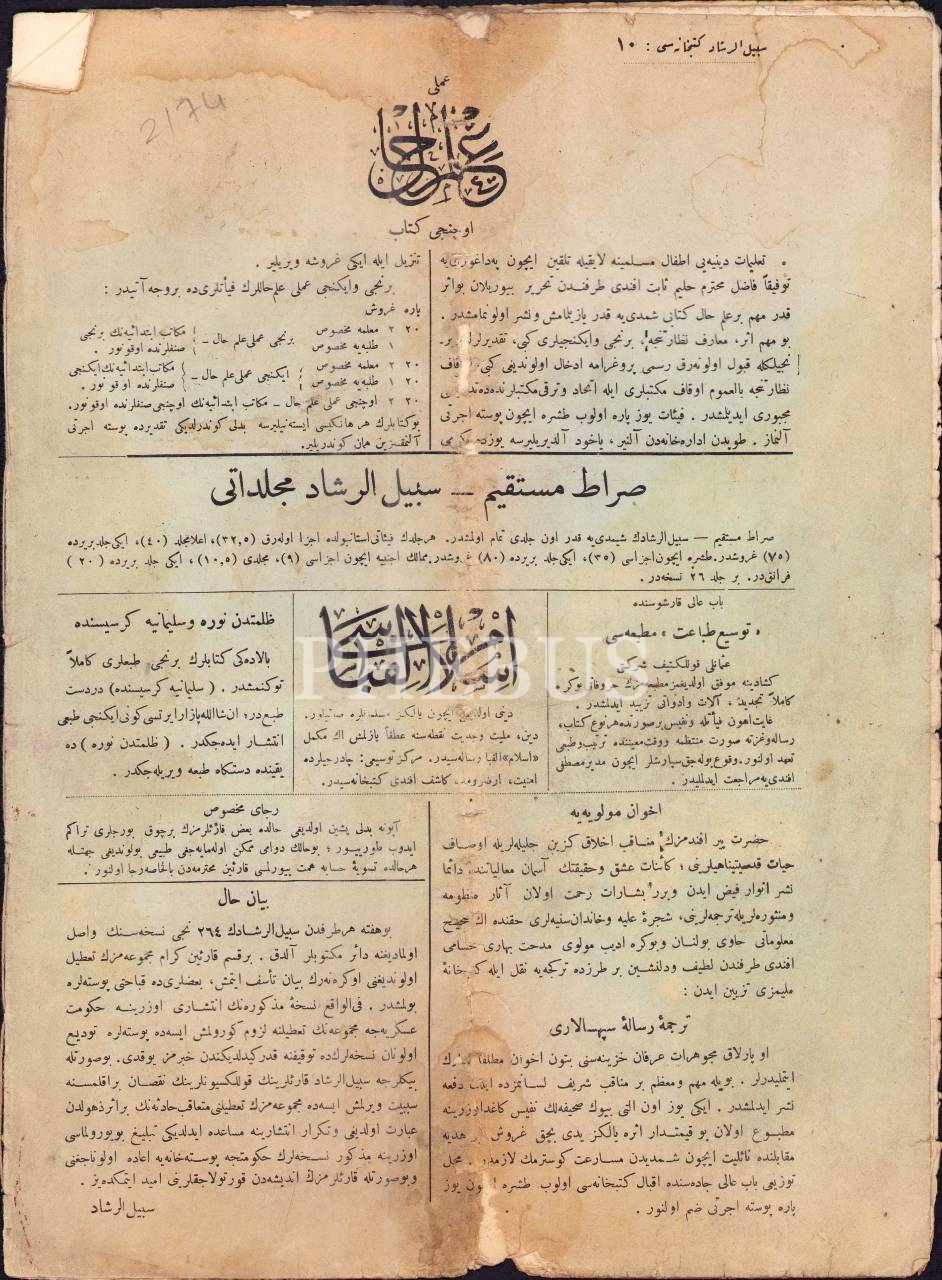 سبیل الرشاد کتبخانه سی : ۱۰
2174
عملی
علم حال
اوچنجی کتاب
• تعلیمات دینیه یی اطفال مسلمینه لایقیله تلقین ایچون
توفیقاً فاضل محترم حلیم ثابت افندی طرفندن تحریر بیوریلان بو اثر
قدر مهم بر علم حال کتابی شمدی یه قدر یازیلمامش و نشر اولونمامشدر .
بو مهم اثر، معارف نظارتنجه ، برنجی وایکنجیلری کبی، تقدیرلرله
قبول اولونه رق رسمی پروغرامه ادخال اولوندیغی کبی اوقاف
نظارتنجه بالعموم اوقاف مکتبلری ایله اتحاد وترقی مکتبلرنده ده
مجبوری ایدیلمشدر . فیئات یوز پاره اولوب طشره ایچون پوسته اجرتی
آلنماز . طوپدن اداره خانه دن آلنیر ، یاخود آلدیریلیرسه یوزده یکرمی
تنزیل ایله ایکی غروشه ویریلیر .
برنجی وایکنجی عملی علم حاللرك فیأتلری ده بروجه آتیدر :
پاره غروش
۲۰ ۲ معلمه مخصوص
۱ طلبه یه مخصوص
برنجی عملی علم حال ــ
مکاتب ابتدائیه نك برنجی
صنفلرنده اوقونور .
۲۰ ۲ معلمه مخصوص
۲۰ ۱ طلبه یه مخصوص
ایکنجی عملی علم حال ــ
مکاتب ابتدائیه نك ایکنجی
صنفلرنده اوقونور .
۲۰ ۲ اوچنجی عملی علم حال ــ مکاتب ابتدائیه نك اوچنجی صنفلرنده اوقونور.
بو کتابلرك هر هانکیسی ایسته نیلیرسه بدلی کوندرلدیکی تقدیرده پوسته اجرتی
آلنمقسزین همان کوندریلیر .
صراط مستقیم ــ سبیل الرشاد مجلداتی
صراط مستقیم ــ سبیل الرشادك شیمدی یه قدر اون جلدی تمام اولمشدر. هر جلدك فیئاتی استانبولده اجزا اوله رق (۳۲٫۵)، اعلا مجلد (۴۰)، ایکی جلد بریرده
(۷۵) غروشدر. طشره ایچون اجزاسی (۳۵)، ایکی جلد بریرده (۸۰) غروشدر. ممالك اجنبیه ایچون اجزاسی (۹)، مجلدی (۱۰٫۵) ، ایکی جلد بریرده ( ۲۰ )
فرانقدر. بر جلد ۲۶ نسخه در .
باب عالی قارشوسنده
« توسیع طباعت » مطبعه سی
عثمانلی قوللکتیف شرکتی
کشادینه موفق اولدیغمز مطبعه مزك حروفاتی بوکره
کاملاً تجدید ، آلات وادواتی تزیید ایدلمشدر .
غایت اهون فیأتله ونفیس بر صورتده هر نوع کتاب،
رساله وغزته صورت منتظمه ووقت معیننده ترتیب وطبعی
تعهد اولنور. وقوع بوله جق سپارشلر ایچون مدیر مصطفی
افندی یه مراجعت ایدلملیدر .
اسلام الفباسی
دین، ملیت وجدیت نقطه سنه عطفاً یازلمش اك مکمل
«اسلام» الفبا رساله سیدر. مرکز توسیعی: چادرجیلرده
امنیت، کاشف افندی کتبخانه سیدر.
ظلمتدن نوره و سلیمانیه کرسیسنده
بالاده کی کتابلرك برنجی طبعلری کاملاً
توکنمشدر . ( سلیمانیه کرسیسنده ) دردست
طبعدر ؛ ان شا الله پازار ایرتسی کونی ایکنجی طبعی
انتشار ایده جکدر . ( ظلمتدن نوره ) ده
یقینده دستکاه طبعه ویریله جکدر .
PHEBUS
اخوان مولویه یه
حضرت پیر افندمزك مناقب اخلاق کزین جلیله لریله اوصاف
حیات قدسیتپناهیلرینی ؛ کائنات عشق وحقیقتك آسمان معالیاتنده دائما
نشر انوار فیض ایدن وبرر بشارات رحمت اولان آثار منظومه
ومنثوره لریله ترجمه لرینی، شجرهٔ علیه وخاندان سنیه لری حقنده اك صحیح
معلوماتی حاوی بولنان وبوکره ادیب مولوی مدحت بهاری حسامی
افندی طرفندن لطیف ودلنشین بر طرزده ترکجه یه نقل ایله کتبخانهٔ
ملیمزی تزیین ایدن :
ترجمهٔ رسالهٔ سپهسالاری
او پارلاق مجوهرات عرفان خزینه سنی بتون اخوان مطلقا
ایتملیدرلر . بویله مهم ومعظم بر مناقب شریف لسانمزده ایلك دفعه
نشر ایدلمشدر . ایکی یوز اون التی بیوك صحیفه لك نفیس کاغد اوزرینه
مطبوع اولان بو قیمتدار اثره یالکز یدی بچق غروش بر هدیه
مقابلنده نائلیت ایچون شمدیدن مسارعت کوسترمك لازمدر . محل
توزیعی باب عالی جاده سنده اقبال کتبخانه سی اولوب طشره ایچون یوز
پاره پوسته اجرتی ضم اولنور .
رجای مخصوص
آبونه بدلی پشین اولدیغی حالده بعض قارئلرمزك برچوق بورجلری تراکم
ایدوب طورییور ؛ بوحالك دوامی ممکن اوله مایه جغی طبیعی بولوندیغی جهتله
هر حالده تسویهٔ حسابه همت بیورلمسی قارئین محترمه دن بالخاصه رجا اولنور .
بیان حال
بو هفته هر طرفدن سبیل الرشادك ۲۶۴ نجی نسخه سنك واصل
اولمادیغنه دائر مکتوبلر آلدق . برقسم قارئین کرام مجموعه مزك تعطیل
اولوندیغنی اوکره نه رك بیان تأسف ایتمش، بعضلری ده قباحتی پوسته لره
بولمشدر . فی الواقع نسخهٔ مذکوره نك انتشاری اوزرینه حکومت
عسکریه جه مجموعه نك تعطیلنه لزوم کورولمش ایسه ده پوسته لره تودیع
اولنان نسخه لرك ده توقیفنه قدر کیدلدیکندن خبرمز یوقدی. بوصورتله
بیکلرجه سبیل الرشاد قارئلرینك قوللکسیونلرینك نقصان براقلمسنه
سببیت ویرلمش ایسه ده مجموعه مزك تعطیلنی متعاقب حادثه نك بر اثر ذهولدن
عبارت اولدیغی وتکرار انتشارینه مساعده ایدلدیکی تبلیغ بویورولماسی
اوزرینه مذکور نسخه لرك حکومتجه پوسته خانه یه اعاده اولوناجغنی
وبوصورتله قارئلرمزك اندیشه دن قورتولاجقلرینی امید ایتمکده یز .
سبیل الرشاد